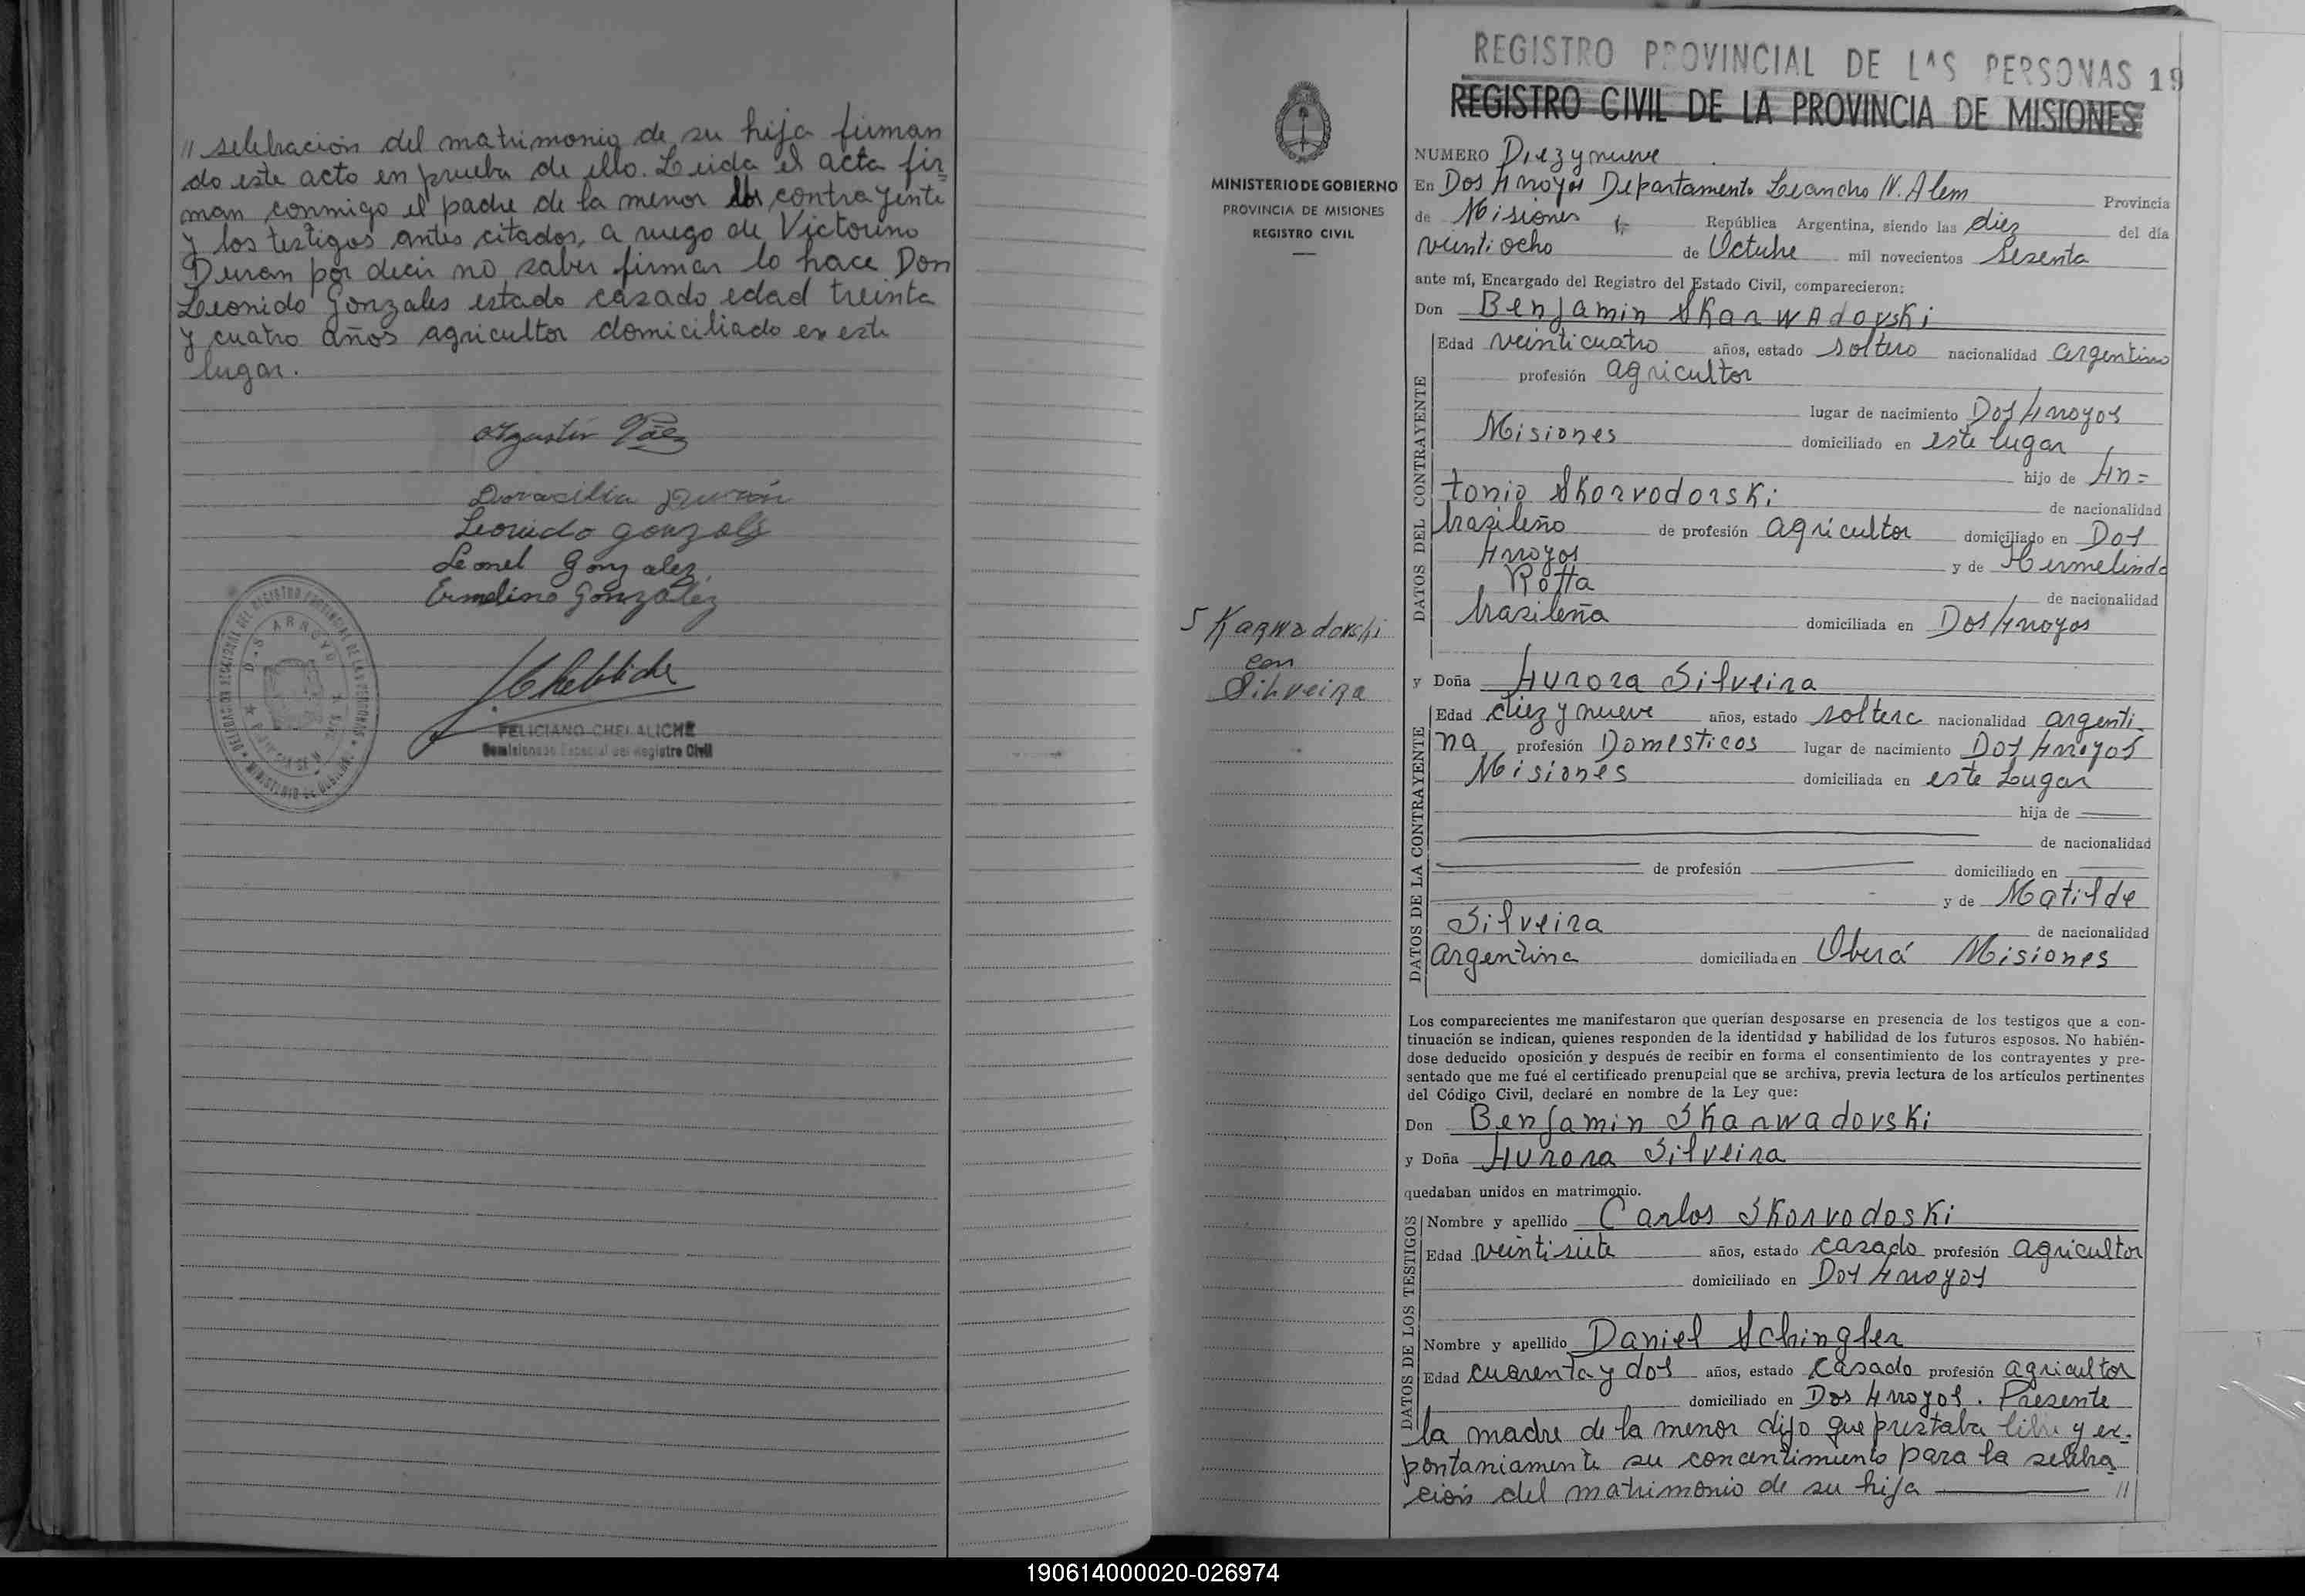 // selebracion del matrimonio de su hija firman
do este acto en prueba de ello. Leida el acta fir=
man conmigo el padre de la menor los contrayente
y los testigos antes citados, a ruego de Victorino
Duran por decir no saber firmar lo hace Don
Leonido Gonzales estado casado edad treinta
y cuatro años agricultor domiciliado en este
lugar.
Agustin Páez
Doracilia Durán
Leonido Gonzalez
Leonel Gonzalez
Ermelino González
FELICIANO CHELALICHE
Comisionado Especial del Registro Civil
MINISTERIO DE GOBIERNO
PROVINCIA DE MISIONES
REGISTRO CIVIL
Skarwadovski
con
Silveira
REGISTRO PROVINCIAL DE LAS PERSONAS 19
REGISTRO CIVIL DE LA PROVINCIA DE MISIONES
NUMERO Diez y nueve
En Dos Arroyos Departamento Leandro N. Alem Provincia
de Misiones República Argentina, siendo las diez del día
veintiocho de Octubre mil novecientos sesenta
ante mí, Encargado del Registro del Estado Civil, comparecieron:
Don Benjamin Skarwadovski
DATOS DEL CONTRAYENTE
Edad veinticuatro años, estado soltero nacionalidad argentino
profesión agricultor
lugar de nacimiento Dos Arroyos
Misiones domiciliado en este lugar
hijo de An=
tonio Skorvodorski de nacionalidad
brasileño de profesión agricultor domiciliado en Dos
Arroyos y de Hermelinda
Rotta de nacionalidad
brasileña domiciliada en Dos Arroyos
y Doña Aurora Silveira
DATOS DE LA CONTRAYENTE
Edad diez y nueve años, estado soltera nacionalidad argenti
na profesión Domesticos lugar de nacimiento Dos Arroyos
Misiones domiciliada en este Lugar
hija de
de nacionalidad
de profesión domiciliado en
y de Matilde
Silveira de nacionalidad
argentina domiciliada en Oberá Misiones
Los comparecientes me manifestaron que querían desposarse en presencia de los testigos que a con-
tinuación se indican, quienes responden de la identidad y habilidad de los futuros esposos. No habién-
dose deducido oposición y después de recibir en forma el consentimiento de los contrayentes y pre-
sentado que me fué el certificado prenupcial que se archiva, previa lectura de los artículos pertinentes
del Código Civil, declaré en nombre de la Ley que:
Don Benjamin Skarwadovski
y Doña Aurora Silveira
quedaban unidos en matrimonio.
DATOS DE LOS TESTIGOS
Nombre y apellido Carlos Skorvodoski
Edad veintisiete años, estado casado profesión agricultor
domiciliado en Dos Arroyos
Nombre y apellido Daniel Schingler
Edad cuarenta y dos años, estado casado profesión agricultor
domiciliado en Dos Arroyos. Presente
la madre de la menor dijo que prestaba libre y ex=
pontaniamente su concentimiento para la selebra
cion del matrimonio de su hija //
190614000020-026974